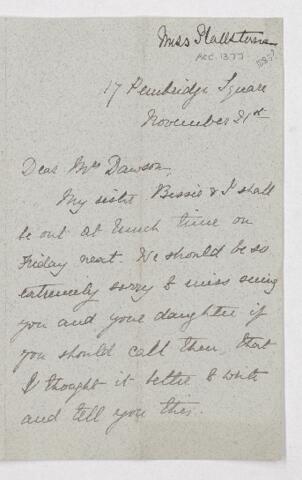 Miss
ACC. 1377
17 Pembridge Square
November 21st
Dear Mrs Dawson,
My sister Bessie & I shall
be out at lunch time on
Friday next. We should be so
extremely sorry to miss seeing
you and your daughter if
you should call then, that
I thought it better to write
and tell you this.